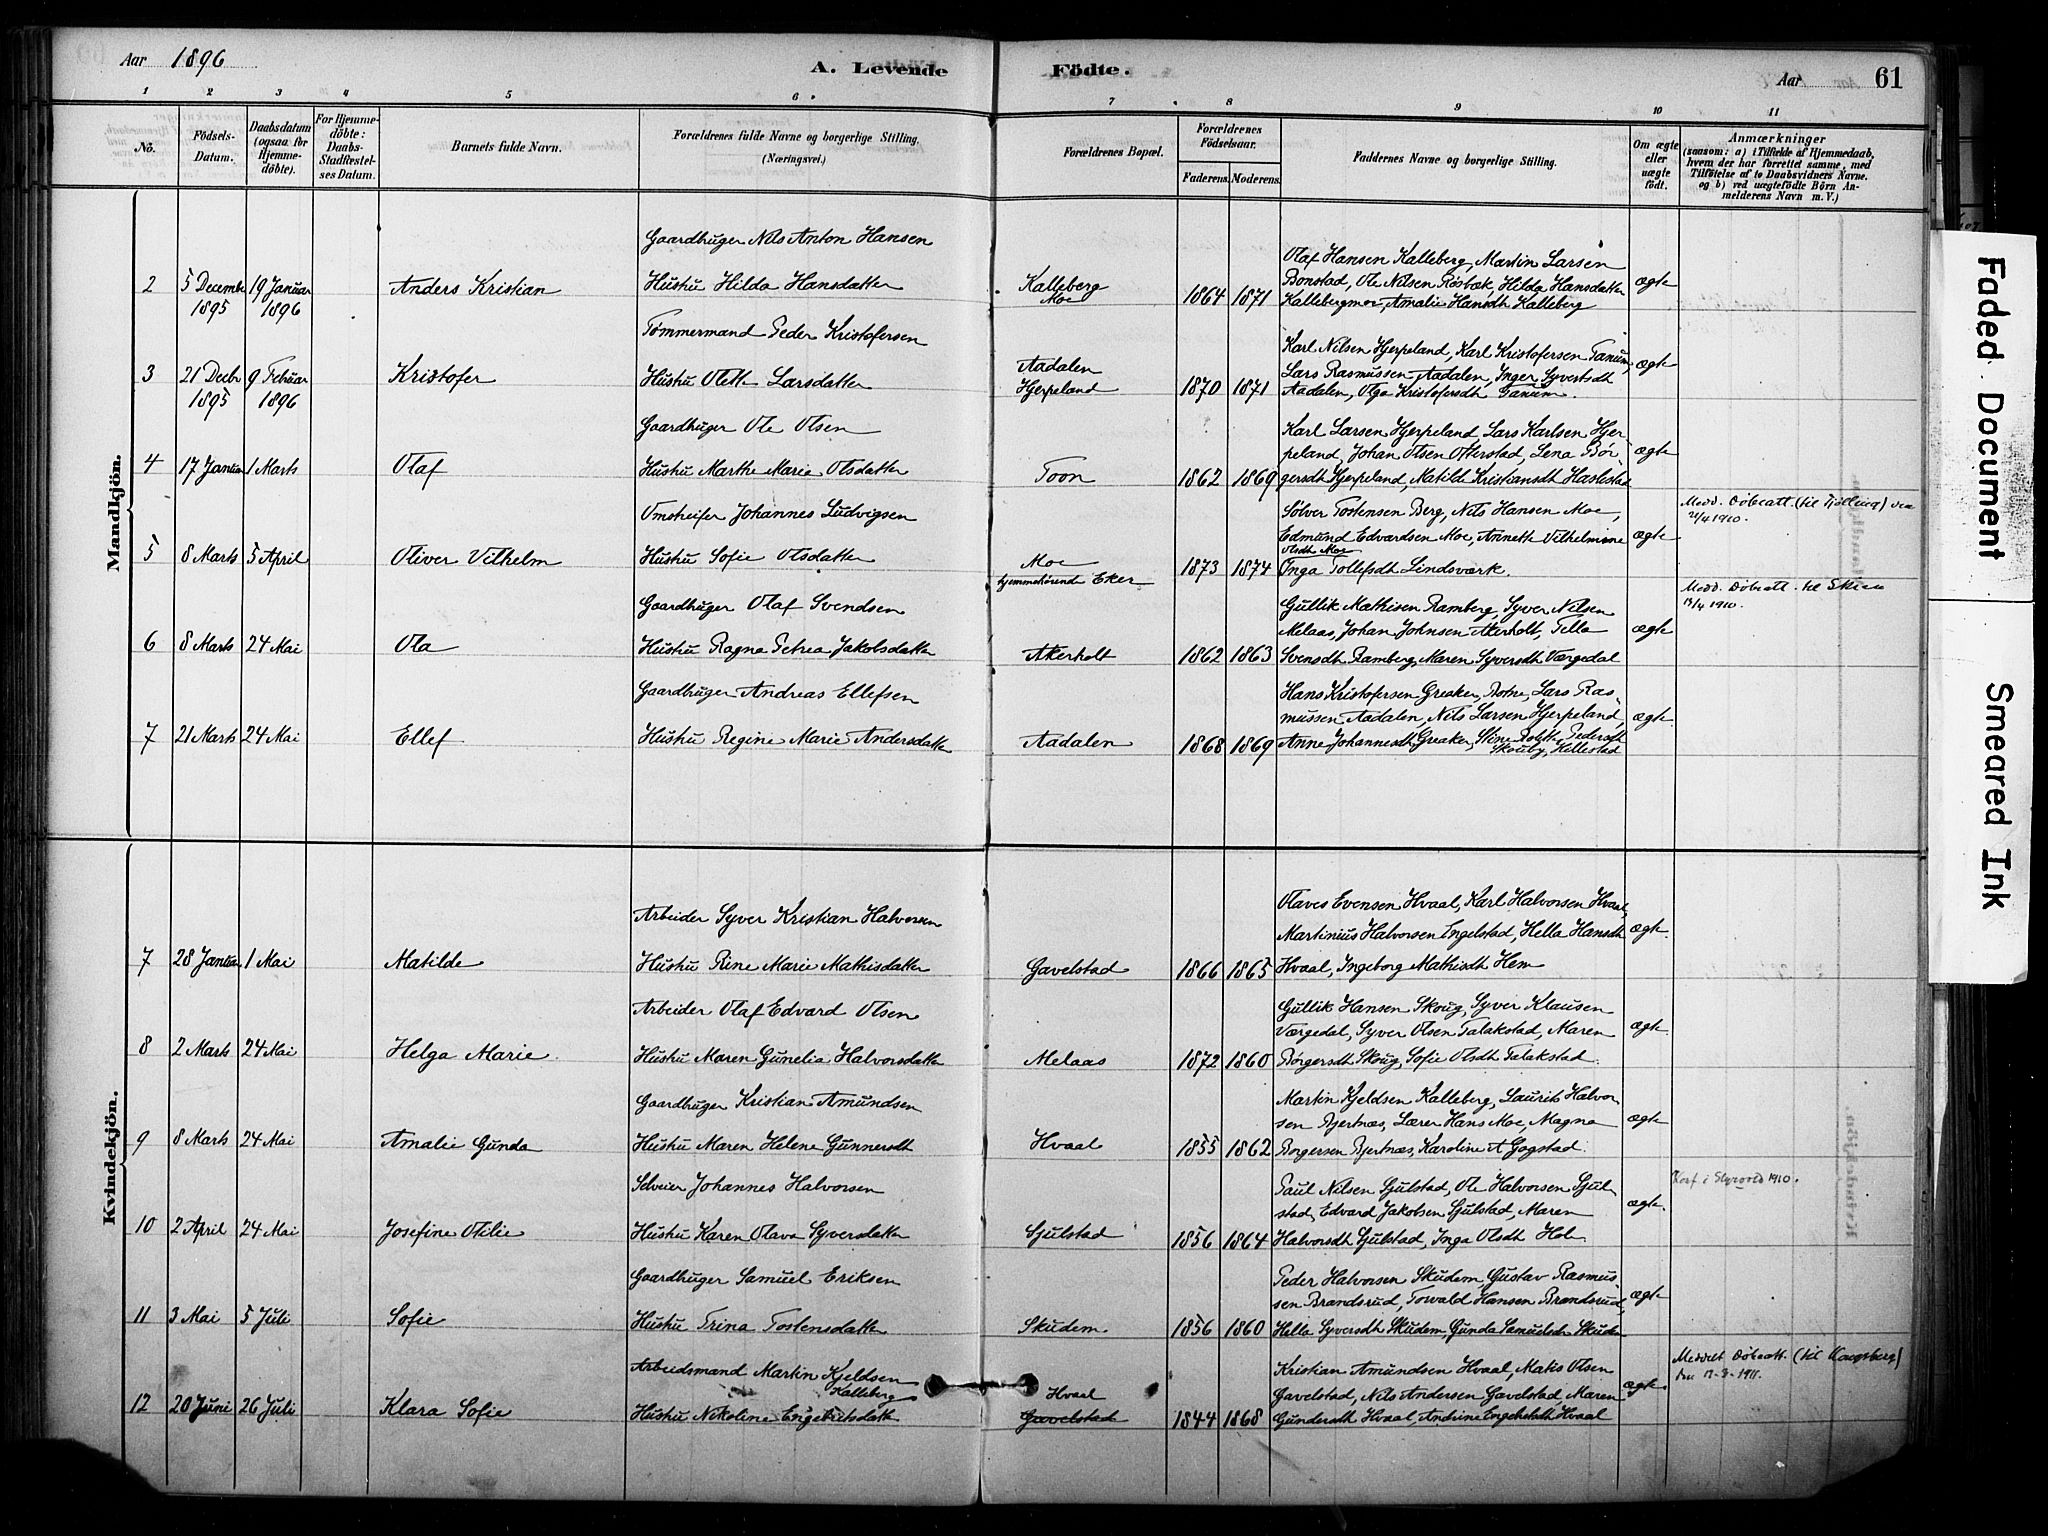 Aar 1896
A. Levende
Födte.
Aar
61
1 2 3 4 5 6 7 8 9 10 11
No.
Födsels-
Datum.
Daabsdatum
(ogsaa for
Hjemme-
döbte).
For Hjemme-
döbte:
Daabs-
Stadfæstel-
ses Datum.
Barnets fulde Navn.
Forældrenes fulde Navne og borgerlige Stilling.
(Næringsvei.)
Forældrenes Bopæl.
Forældrenes
Födselsaar.
Faderens. Moderens.
Faddernes Navne og borgerlige Stilling.
Om ægte
eller
uægte
födt.
Anmærkninger
(saasom: a) i Tilfælde af Hjemmedaab,
hvem der har forrettet samme, med
Tilföielse af to Daabsvidners Navne,
og b) ved uægtefödte Börn An-
melderens Navn m. V.)
Mandkjön.
Gaardbruger Nils Anton Hansen
2 5 Decembr 19 Januar Anders Kristian Hustru Hilda Hansdatter
1895 1896
Kalleberg
Moe
1864 1871
Olaf Hansen Kalleberg, Martin Larsen
Bonstad, Ole Nilsen Røsbæk, Hilda Hansdatter
Kallebergmoe, Amalie Hansdt Kalleberg
ægte
Tømmermand Peder Kristofersen
3 21 Decbr 9 Februar Kristofer Hustru Olette Larsdatter
1895 1896
Aadalen
Hjerpeland
1870 1871
Karl Nilsen Hjerpeland, Karl Kristofersen Tanum,
Lars Rasmussen Aadalen, Inger Syvertsdt
Aadalen, Olga Kristofersdt Tanum.
ægte
Gaardbruger Ole Olsen
4 17 Januar 1 Marts Olaf Hustru Marthe Marie Olsdatter
Toon
1862 1869
Karl Larsen Hjerpeland, Lars Karlsen Hjer-
peland, Johan Olsen Otterstad, Lena Bør-
gersdt Hjerpeland, Matilde Kristiansdt Haslestad
ægte
Johannes Ludvigsen
5 8 Marts 5 April Oliver Vilhelm Hustru Sofie Olsdatter
Moe
hjemmehørende Eker
1873 1874
Sølver Tostensen Berg, Nils Hansen Moe,
Edmund Edvardsen Moe, Annette Vilhelmine
Olsdt Moe
Inga Tollefsdt Lindsværk.
ægte
Medd. Döbeatt. (til Tjølling) den
21/4 1910.
Gaardbruger Olaf Svendsen
6 8 Marts 24 Mai Ola Hustru Ragna Petrea Jakobsdatter
Akerholt
1862 1863
Gullik Mathisen Ramberg, Syver Nilsen
Melaas, Johan Johnsen Akerholt, Tella
Svensdt Ramberg, Maren Syversdt Værgedal
ægte
Medd. Döbeatt. til Skien
13/4 1910.
Gaardbruger Andreas Ellefsen
7 21 Marts 24 Mai Ellef Hustru Regine Marie Andersdatter
Aadalen
1868 1869
Hans Kristofersen Greaker, Botne, Lars Ras-
mussen Aadalen, Nils Larsen Hjerpeland,
Anne Johannesdt Greaker, Stine Bolette Pedersdt
Skouby, Hillestad
ægte
Kvindekjön.
Arbeider Syver Kristian Halvorsen
7 28 Januar 1 Mai Matilde Hustru Rine Marie Mathisdatter
Gavelstad
1866 1865
Olaves Evensen Hvaal, Karl Halvorsen Hvaal,
Martinius Halvorsen Engelstad, Hella Hansdt
Hvaal, Ingeborg Mathisdt Hem
ægte
Arbeider Olaf Edvard Olsen
8 2 Marts 24 Mai Helga Marie Hustru Maren Gunelia Halvorsdatter
Melaas
1872 1860
Gullik Hansen Skoug, Syver Klausen
Værgedal, Syver Olsen Talakstad, Maren
Børgersdt Skoug, Sofie Olsdt Talakstad.
ægte
Gaardbruger Kristian Amundsen
9 8 Marts 24 Mai Amalie Gunda Hustru Maren Helene Gunnersdt
Hvaal
1855 1862
Martin Kjeldsen Kalleberg, Laurits Halvor-
sen Bjertnæs, Lærer Hans Moe, Magna
Borgersen Bjertnæs, Karoline A Gogstad.
ægte
Selveier Johannes Halvorsen
10 2 April 24 Mai Josefine Otilie Hustru Karen Olava Syversdatter
Sjulstad
1856 1864
Paul Nilsen Sjulstad, Ole Halvorsen Sjul-
stad, Edvard Jakobsen Sjulstad, Maren
Halvorsdt Sjulstad, Inga Olsdt Holm
ægte
Konf i Slyvold 1910.
Gaardbruger Samuel Eriksen
11 3 Mai 5 Juli Sofie Hustru Trina Tostensdatter
Skudem.
1856 1860
Peder Halvorsen Skudem, Gustav Rasmus-
sen Brandsrud, Torvald Hansen Brandsrud,
Hella Syversdt Skudem, Gunda Samuelsdt Skudem
ægte
Arbeidsmand Martin Kjeldsen
Kalleberg
12 20 Juni 26 Juli Klara Sofie Hustru Nikoline Engebretsdatt
Hvaal
Gavelstad
1844 1868
Kristian Amundsen Hvaal, Matis Olsen
Gavelstad, Nils Andersen Gavelstad, Maren
Gundersdt Hvaal, Andrine Engebretsdt Hvaal
ægte
Meddelt Döbeatt. (til Kongsberg)
den 1911.
Faded Document
Smeared Ink